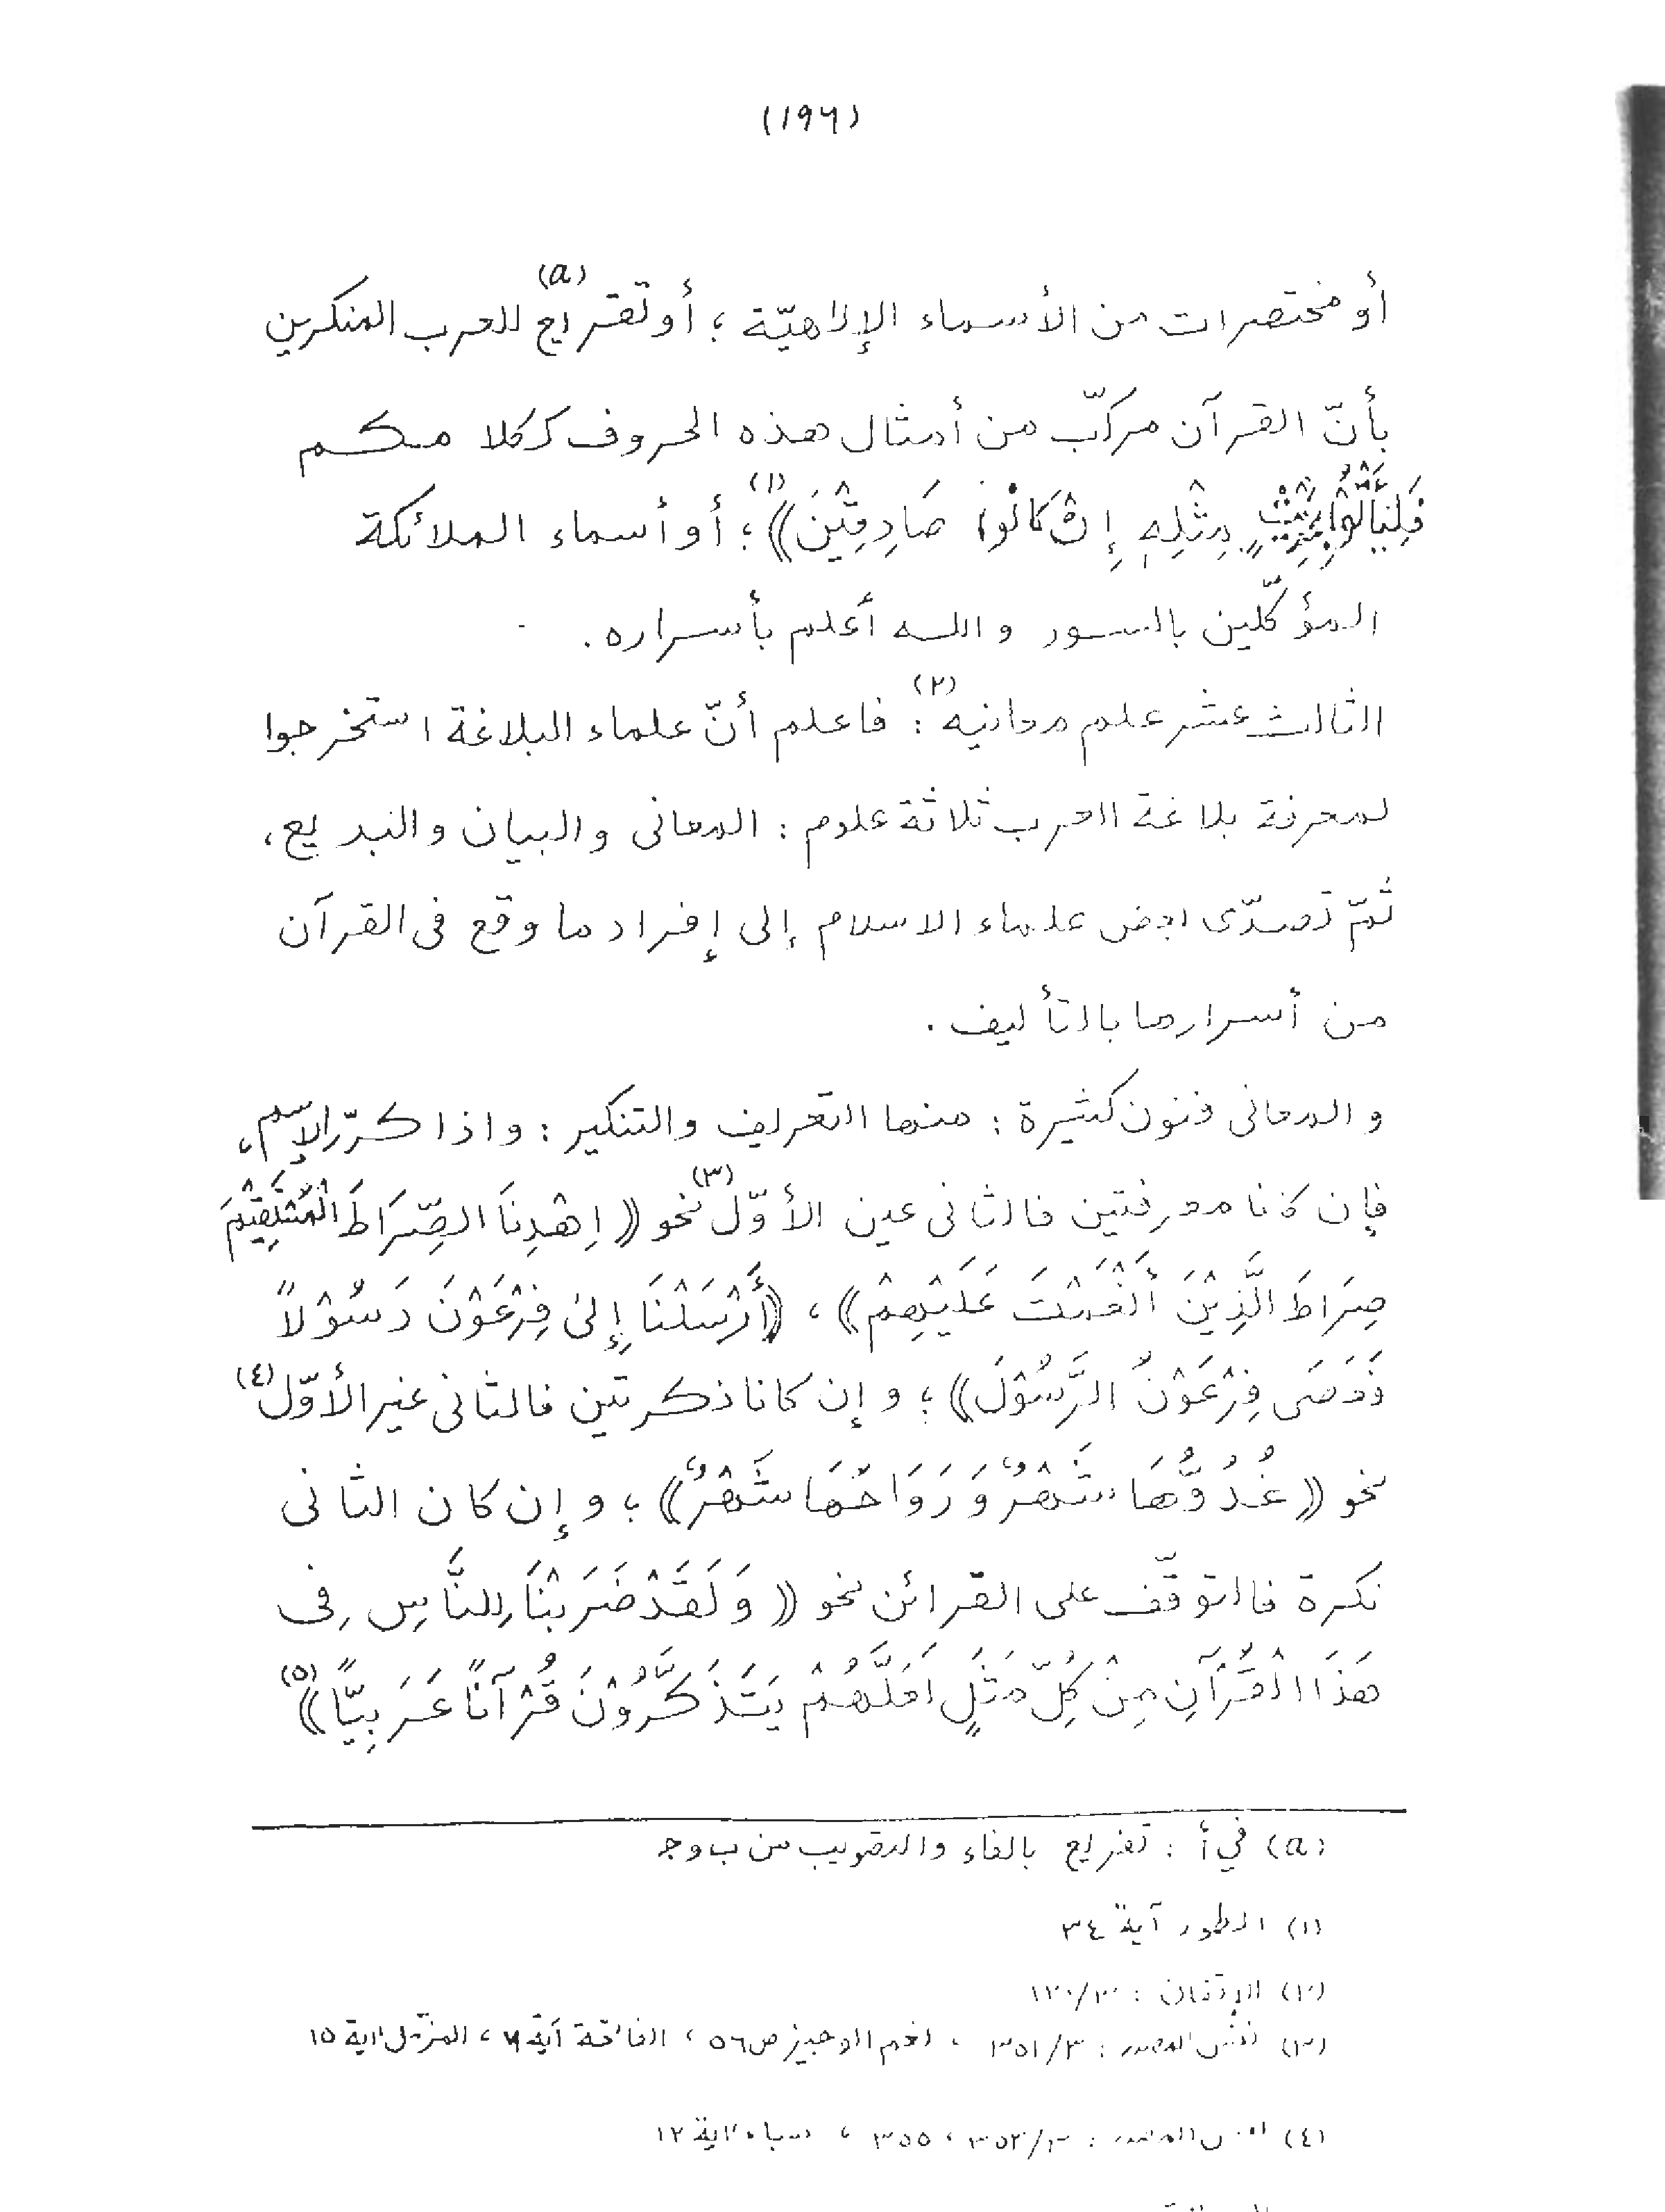 (١٩٦)
أو مختصرات من الأسماء الإلاهيّة ؛ أو تقريع(a) للعرب المنكرين
بأنّ القرآن مركّب من أمثال هذه الحروف ككلامكم
فَلْيَأْتُوْا بِحَدِيْثٍ مِثْلِهِ إِنْ كَانُوْا صَادِقِيْنَ))(١) ؛ أو أسماء الملائكة
المؤكّلين بالسور والله أعلم بأسراره .
الثالث عشر علم معانيه(٢) : فاعلم أنّ علماء البلاغة استخرجوا
لمعرفة بلاغة العرب ثلاثة علوم : المعانى والبيان والبديع ،
ثمّ تصدّى بعض علماء الاسلام إلى إفراد ما وقع فى القرآن
من أسرارها بالتأليف .
و المعانى فنون كثيرة : منها التعريف والتنكير : واذا كرّر الإسم ،
فإن كانا معرفتين فالثانى عين الأوّل(٣) نحو ((اِهْدِنَا الصِّرَاطَ الْمُسْتَقِيْمَ
صِرَاطَ الَّذِيْنَ أَنْعَمْتَ عَلَيْهِمْ)) ، ((أَرْسَلْنَا إِلىٰ فِرْعَوْنَ رَسُوْلاً
فَعَصَى فِرْعَوْنُ الرَّسُوْلَ)) ؛ و إن كانا نكرتين فالثانى غير الأوّل(٤)
نحو ((غُدُوُّهَا شَهْرٌ وَرَوَاحُهَا شَهْرٌ)) ؛ و إن كان الثانى
نكرة فالتوقّف على القرائن نحو ((وَلَقَدْ ضَرَبْنَا لِلنَّاسِ فِى
هَذَا الْقُرْآنِ مِنْ كُلِّ مَثَلٍ لَعَلَّهُمْ يَتَذَكَّرُوْنَ قُرْآناً عَرَبِيّاً))(٥)
(a) في أ : تفريع بالفاء والتصويب من ب وج
(١) الطور آية ٣٤
(٢) الإتقان :
(٣) نفس المصدر : ٣٥١/٣ ، ص ٥٦ ، الفاتحة آية ٦ ، المزمّل آية ١٥
(٤) نفس المصدر : ٣٥٢/٣ ، ٣٥٥ ، سباء آية ١٢